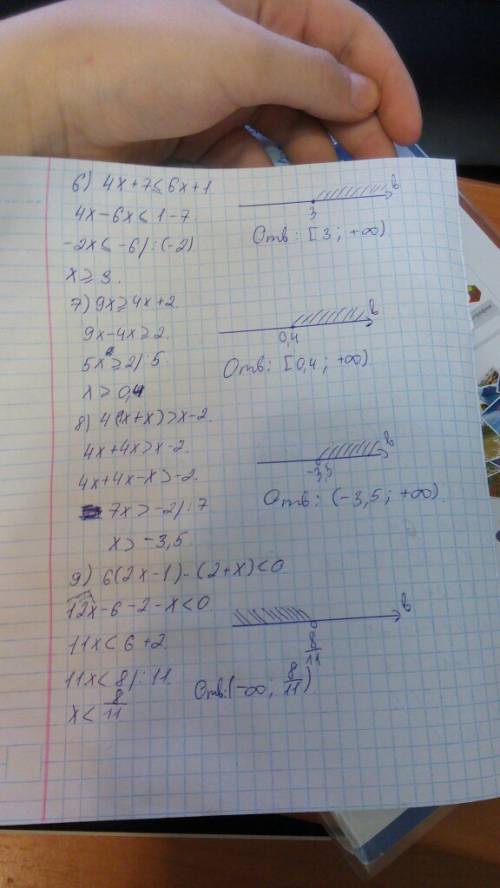 6) 4x+7≤6x+1
4x-6x≤1-7
-2x≤-6/:(-2)
x≥3.
3
Отв: [3; +∞)
7) 9x≥4x+2.
9x-4x≥2.
5x≥2/:5
x≥0,4
0,4
Отв: [0,4; +∞)
8) 4(x+x)>x-2.
4x+4x>x-2.
4x+4x-x>-2.
7x>-2/:7
x>-3,5
-3,5
Отв: (-3,5; +∞).
9) 6(2x-1)-(2+x)<0
12x-6-2-x<0
11x<6+2.
11x<8/:11
x<8/11
8/11
Отв: (-∞; 8/11)